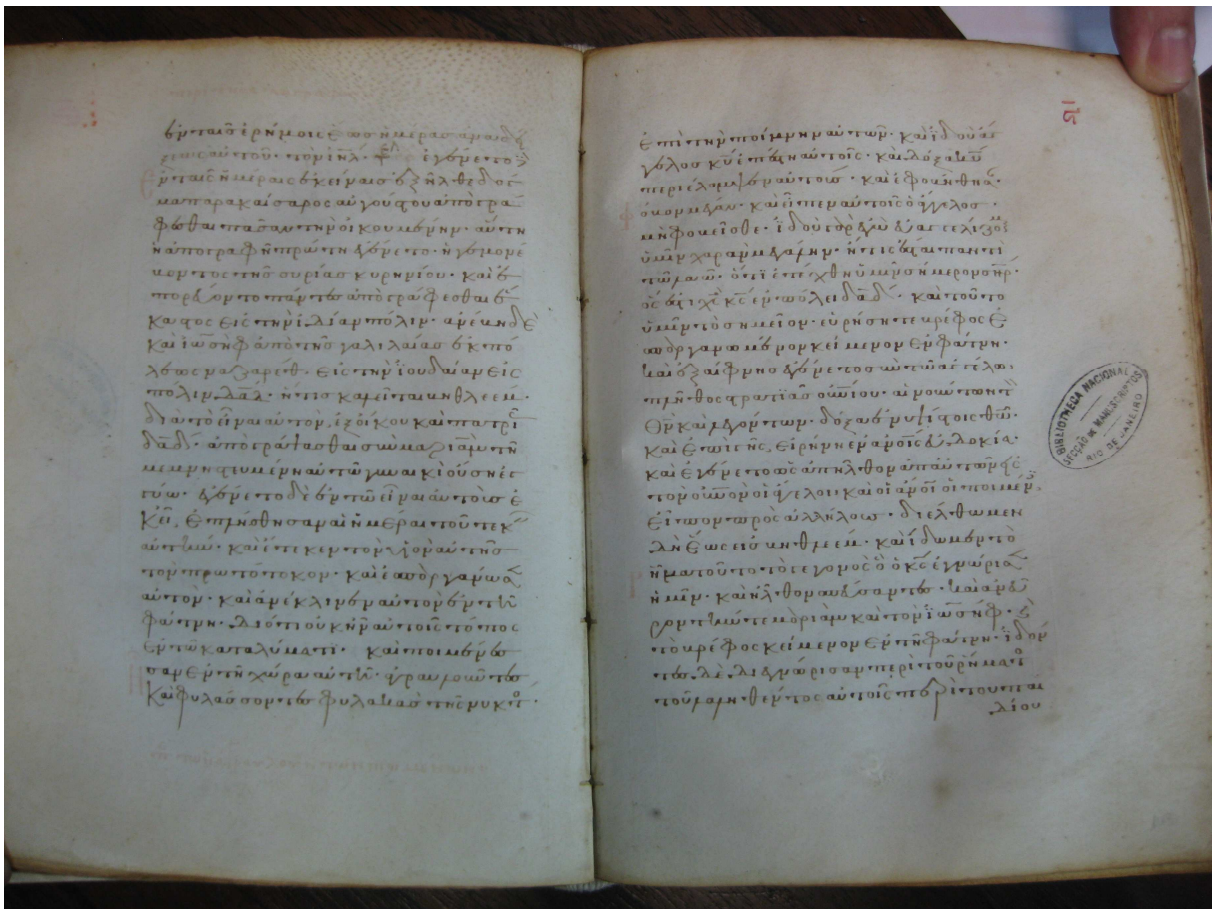 ἐν ταῖς ἐρήμοις ἕως ἡμέρας ἀναδεί
ξεως αὐτοῦ · τὸν ἰηλ · ἐγένετο δὲ
ἐν ταῖς ἡμέραις ἐκείναις ἐξῆλθε δόγ
μα παρὰ καίσαρος αὐγούστου ἀπογρά
φεσθαι πᾶσαν τὴν οἰκουμένην · αὕτη
ἡ ἀπογραφὴ πρώτη ἐγένετο · ἡγεμονεύ
οντος τῆς συρίας κυρηνίου · καὶ ἐ
πορεύοντο πάντες ἀπογράφεσθαι ἕ
καστος εἰς τὴν ἰδίαν πόλιν · ἀνέβη δὲ
καὶ ἰωσὴφ ἀπὸ τῆς γαλιλαίας ἐκ πό
λεως ναζαρέθ · εἰς τὴν ἰουδαίαν εἰς
πόλιν δαδ · ἥτις καλεῖται βηθλεέμ ·
διὰ τὸ εἶναι αὐτὸν, ἐξ οἴκου καὶ πατριᾶς
δαδ · ἀπογράψασθαι σὺν μαριὰμ τῇ
μεμνηστευμένη αὐτῶ γυναικὶ οὔση ἐγ
κύω · ἐγένετο δὲ ἐν τῶ εἶναι αὐτοὺς ἐ
κεῖ, ἐπλήσθησαν αἱ ἡμέραι τοῦ τεκεῖν
αὐτήν · καὶ ἔτεκεν τὸν υἱὸν αὐτῆς
τὸν πρωτότοκον · καὶ ἐσπαργάνωσεν
αὐτὸν · καὶ ἀνέκλινεν αὐτὸν ἐν τῆ
φάτνη · διότι οὐκ ἦν αὐτοῖς τόπος
ἐν τῶ καταλύματι · καὶ ποιμένες
σαν ἐν τῆ χώρα αὐτῆ ἀγραυλοῦντες
καὶ φυλάσσοντες φυλακὰς τῆς νυκτός ·
ιβ
ἐπὶ τὴν ποίμνην αὐτῶν · καὶ ἰδοὺ ἄγ
γελος κυ ἐπέστη αὐτοῖς · καὶ δόξα κυ
περιέλαμψεν αὐτούς · καὶ ἐφοβήθησαν
φόβον μέγαν · καὶ εἶπεν αὐτοῖς ὁ ἄγγελος ·
μὴ φοβεῖσθε · ἰδοὺ γὰρ εὐαγγελίζομαι
ὑμῖν χαρὰν μεγάλην · ἥτις ἔσται παντὶ
τῶ λαῶ · ὅτι ἐτέχθη ὑμῖν σήμερον σηρ ·
ὅς ἐστι χς κς ἐν πόλει δαδ · καὶ τοῦτο
ὑμῖν τὸ σημεῖον · εὑρήσητε βρέφος ἐ
σπαργανωμένον κείμενον ἐν φάτνη ·
καὶ ἐξαίφνης ἐγένετο σὺν τῶ ἀγγέλω,
πλῆθος στρατιᾶς οὐνίου · αἰνούντων τὸν
θν καὶ λεγόντων · δόξα ἐν ὑψίστοις θω ·
καὶ ἐπὶ γῆς, εἰρήνη ἐν ανοις εὐδοκία ·
καὶ ἐγένετο ὡς ἀπῆλθον ἀπ αὐτῶν εἰς
τὸν οὐνον οἱ ἄγγελοι · καὶ οἱ ανοι οἱ ποιμένες,
εἶπον πρὸς ἀλλήλους · διέλθωμεν
δὴ ἕως εἰς βηθλεέμ · καὶ ἴδωμεν τὸ
ῥῆμα τοῦτο τὸ γεγονὸς ὃ ὁ κς ἐγνώρισεν
ἡμῖν · καὶ ἦλθον σπεύσαντες · καὶ ἀνεῦ
ρον τήν τε μαριὰμ καὶ τὸν ἰωσὴφ · καὶ
τὸ βρέφος κείμενον ἐν τῆ φάτνη · ἰδόν
τες δὲ διεγνώρισαν περὶ τοῦ ῥήματος
τοῦ λαληθέντος αὐτοῖς περὶ τοῦ παι
δίου
BIBLIOTHECA NACIONAL
SECÇÃO DE MANUSCRIPTOS
RIO DE JANEIRO